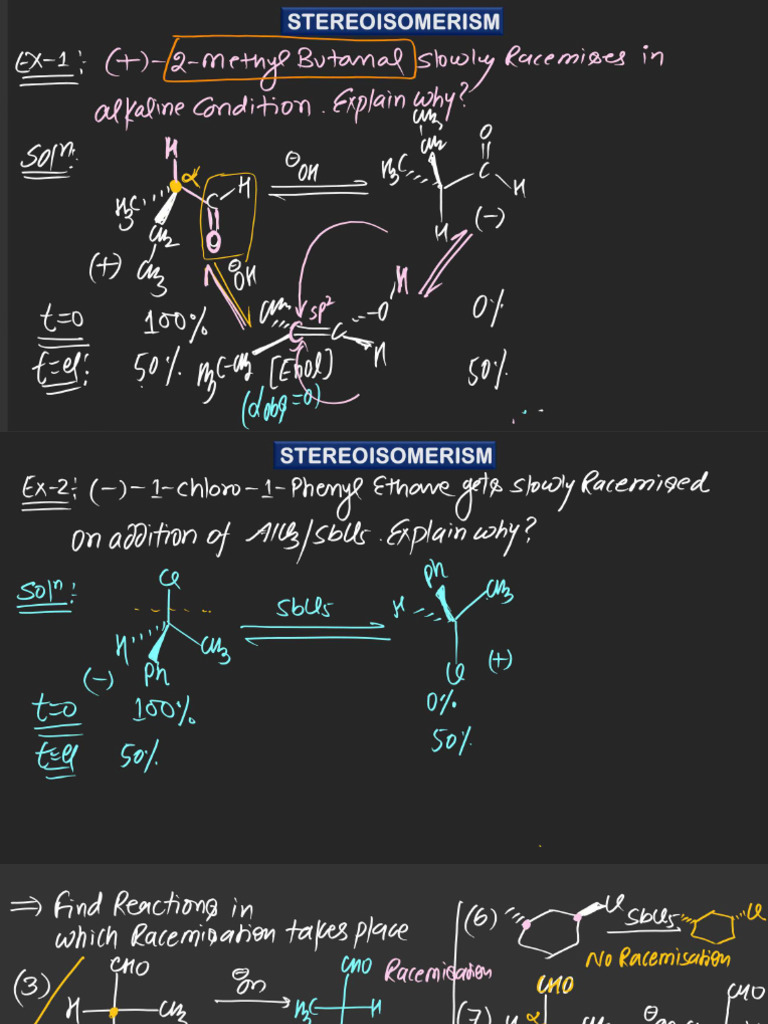 STEREOISOMERISM
Ex-1: (+)-2-methyl Butanal slowly Racemises in
alkaline Condition. Explain why?
Solⁿ:
H
α
H₃C
C
H
O
CH₂
CH₃
(+)
⊖OH
⊖OH
CH₃
CH₂
H₃C
O
C
H
H
(-)
H
CH₃
sp²
C=C
O
H
H₃C-CH₂
[Enol]
(dobs=0)
t=0 100% 0%
t=eq: 50% 50%
STEREOISOMERISM
Ex-2: (-)-1-Chloro-1-Phenyl Ethane gets slowly Racemised
on addition of AlCl₃/SbCl₅. Explain why?
Solⁿ:
Cl
H
CH₃
Ph
(-)
SbCl₅
Ph
H
CH₃
Cl
(+)
t=0 100% 0%
t=eq 50% 50%
⇒ Find Reactions in
which Racemisation takes place
(3)
CHO
H
CH₃
⊖OH
CHO
H₃C
H
Racemisation
(6)
Cl
SbCl₅
Cl
No Racemisation
(7)
CHO
α
CHO